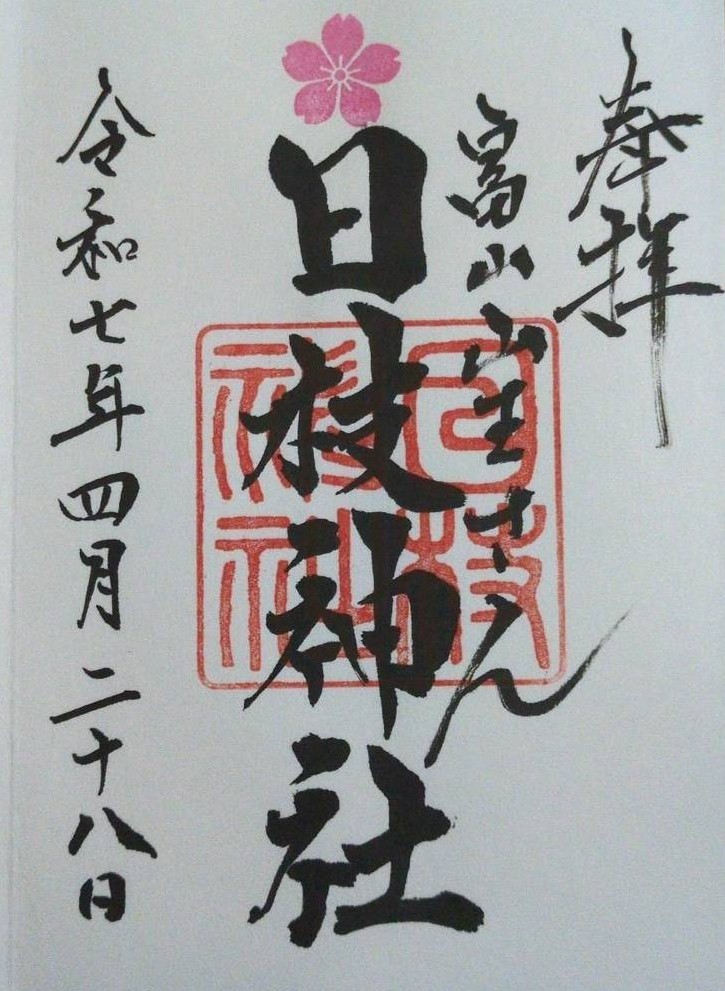 奉拝
富山山王さん
日枝神社
日枝神社
令和七年四月二十八日